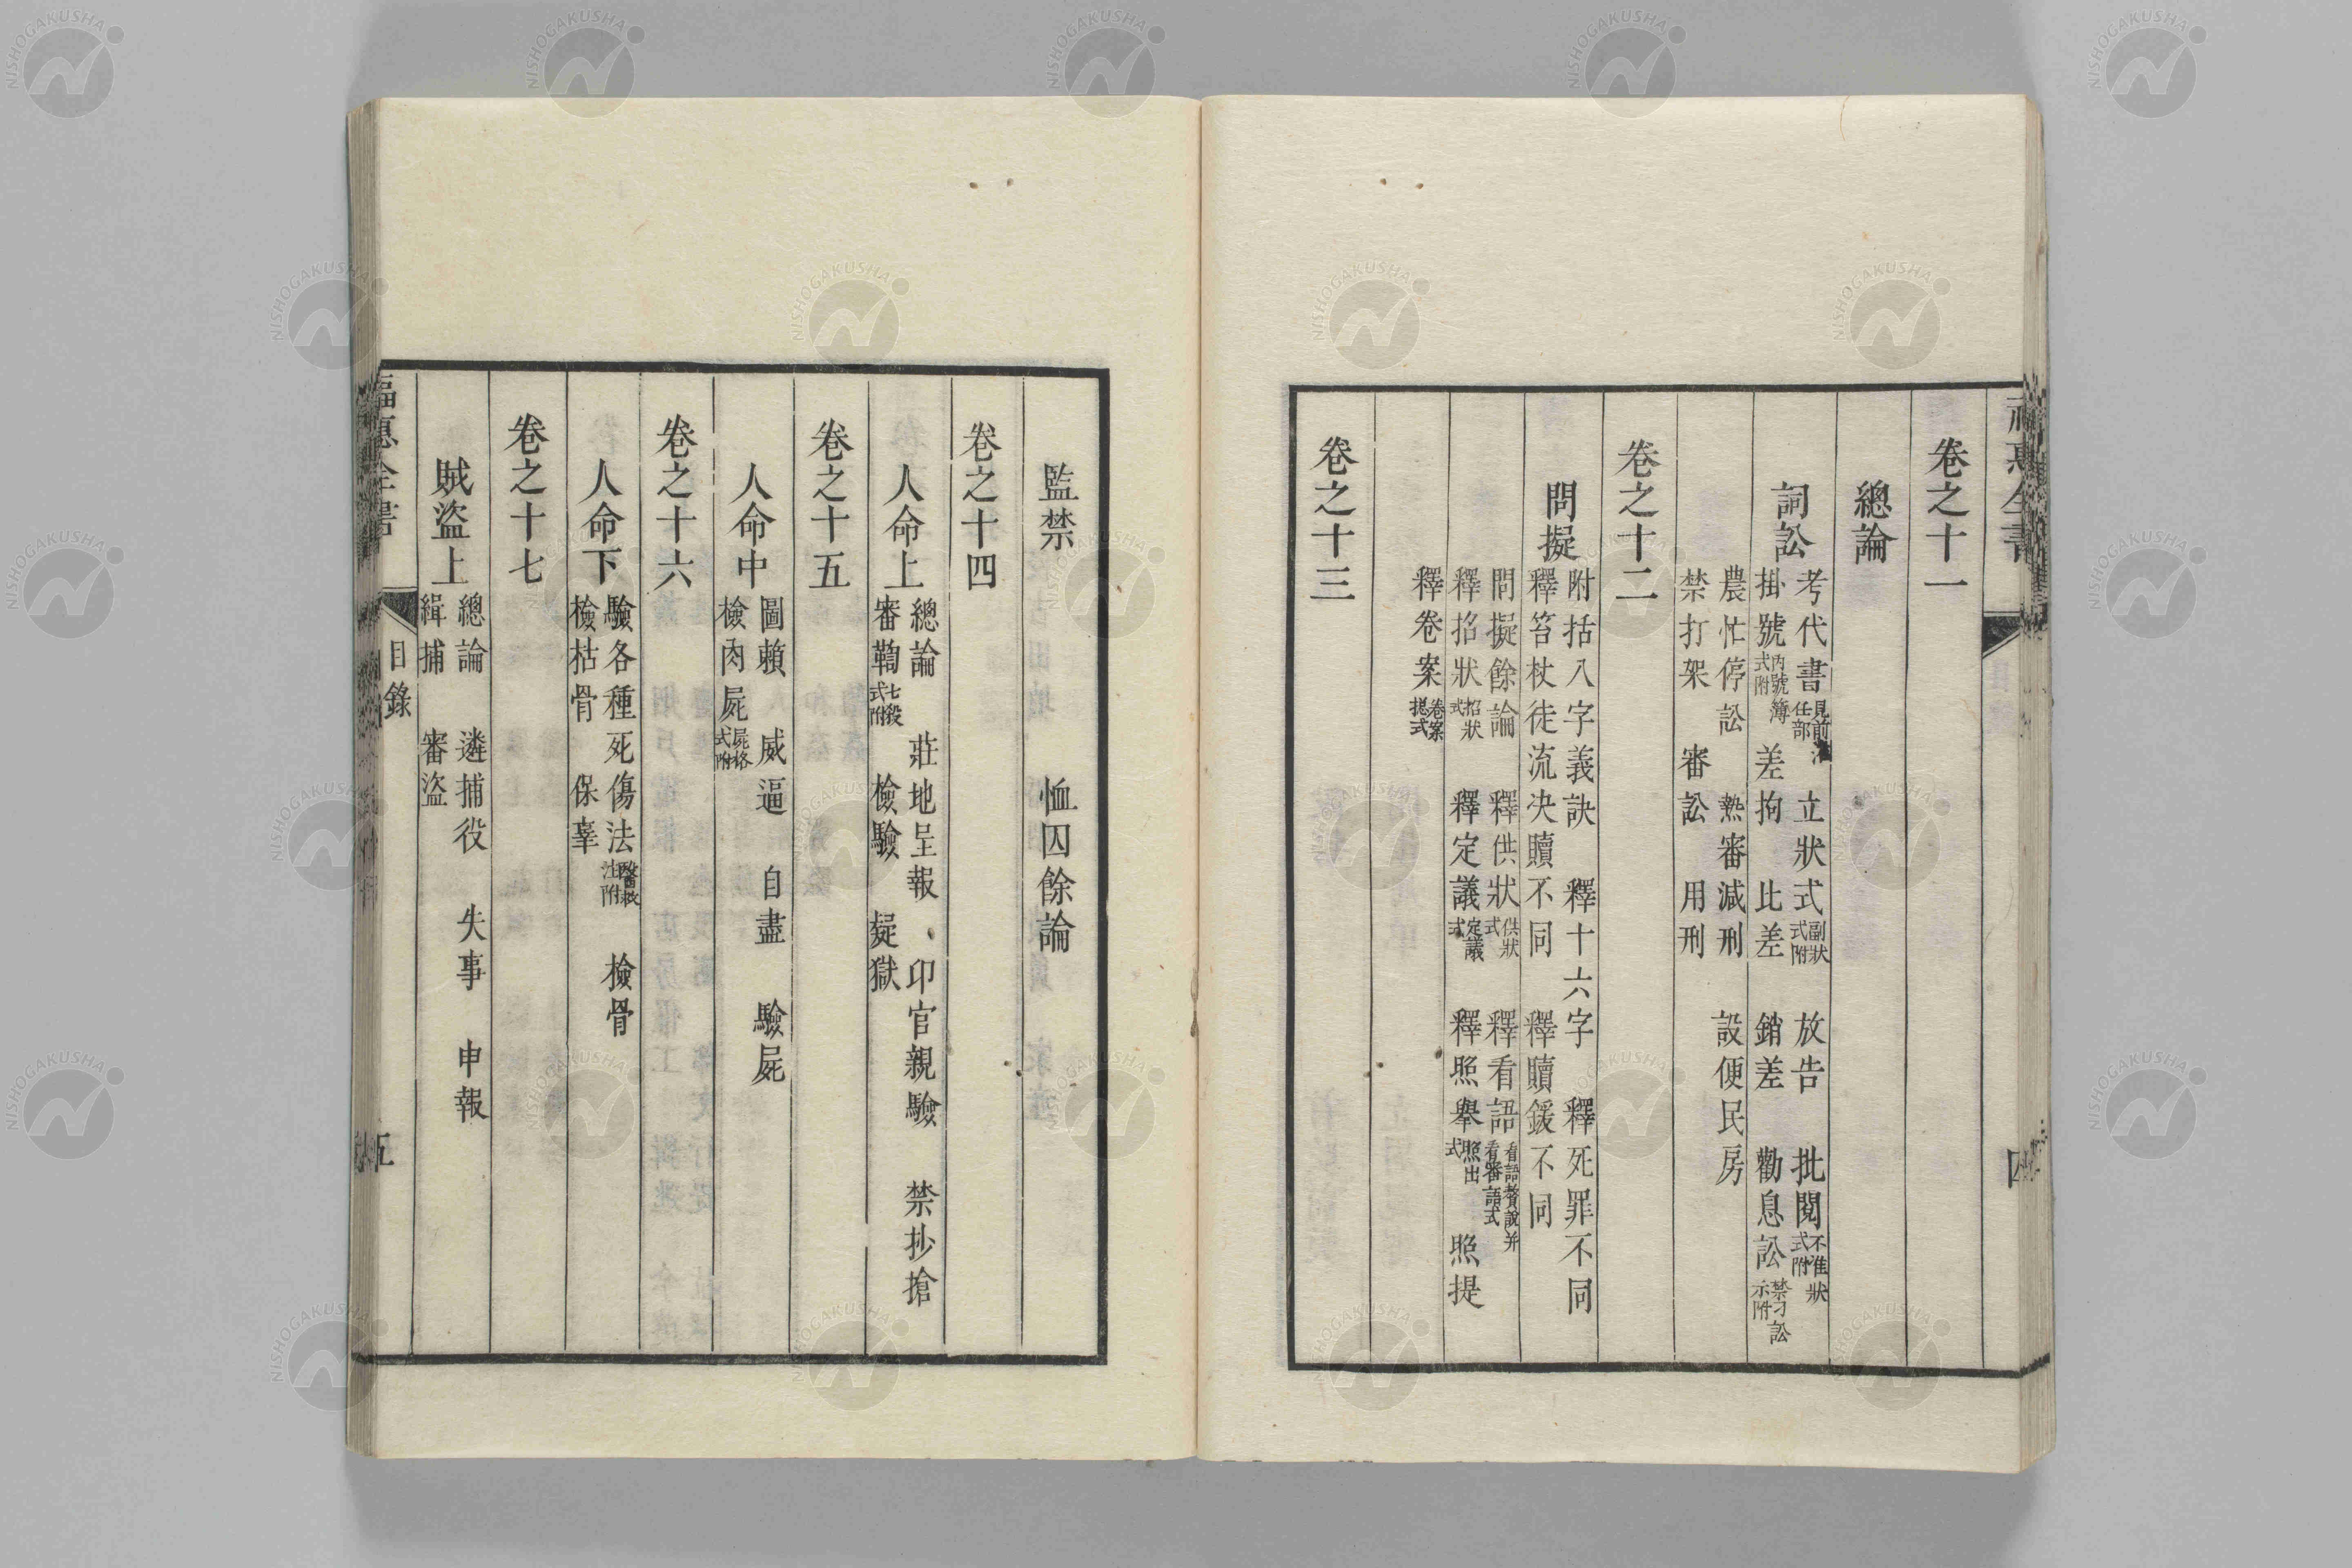 卷之十一
總論
詞訟
考代書見前
任部
立狀式副狀
式附
放告
批閱不准狀
式附
掛號內號簿
式附
差拘
比差
銷差
勸息訟禁刁訟
示附
農忙停訟
熱審減刑
設便民房
禁打架
審訟
用刑
卷之十二
問擬
附括八字義訣
釋十六字
釋死罪不同
釋笞杖徒流决贖不同
釋贖鍰不同
問擬餘論
釋供狀供狀
式
釋看語看語贅說并
看審語式
釋招狀招狀
式
釋定議定議
式
釋照舉照出
式
照提
釋卷案卷案
提式
卷之十三
監禁
恤囚餘論
卷之十四
人命上
總論
莊地呈報
印官親驗
禁抄搶
審鞫七殺
式附
檢驗
疑獄
卷之十五
人命中
圖賴
威逼
自盡
驗屍
檢肉屍屍格
式附
卷之十六
人命下
驗各種死傷法醫救
法附
檢骨
檢枯骨
保辜
卷之十七
賊盜上
總論
遴捕役
失事
申報
緝捕
審盜
福惠全書
目錄
五
NISHOGAKUSHA